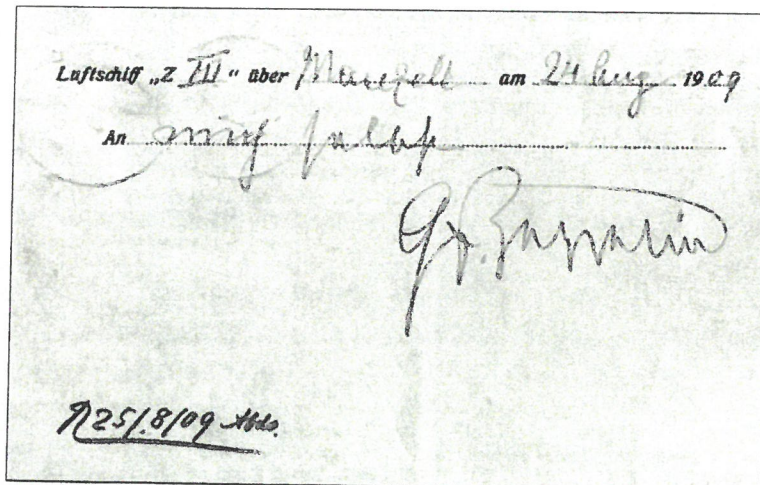 Luftschiff „Z III“ über Manzell am 24 Aug 1909
An mich selbst
Gf. Zeppelin
25/.8/09 Abds.